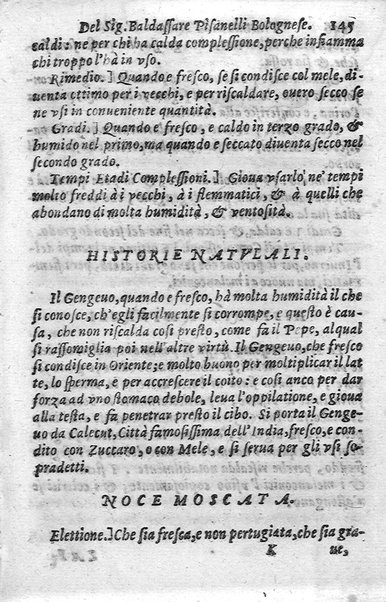 Del Sig. Baldassare Pisanelli Bolognese. 145
caldi: ne per chi ha calda complessione, perche infiamma
chi troppo l'hà in vso.
Rimedio.] Quando è fresco, se si condisce col mele, di-
uenta ottimo per i vecchi, e per riscaldare, ouero secco se
ne vsi in conueniente quantità.
Gradi.] Quando è fresco, e caldo in terzo grado, &
humido nel primo, ma quando è seccato diuenta secco nel
secondo grado.
Tempi Etadi Complessioni.] Gioua vsarlo ne' tempi
molto freddi à i vecchi, à i flemmatici, & à quelli che
abondano di molta humidità, & ventosità.
HISTORIE NATVLALI.
Il Gengeuo, quando e fresco, hà molta humidità il che
si conosce, ch'egli facilmente si corrompe, e questo è cau-
sa, che non riscalda così presto, come fà il Pepe, alqual
si rassomiglia poi nell'altre virtù. Il Gengeuo, che fresco
si condisce in Oriente; e molto buono per moltiplicar il lat
te, lo sperma, e per accrescere il coito: e così anco per dar
forza ad vno stomaco debole, leua l'oppilatione, e gioua
alla testa, e fà penetrar presto il cibo. Si porta il Genge-
uo da Calecut, Città famosissima dell'India, fresco, e con-
dito con Zuccaro, o con Mele, e si serua per gli vsi so-
pradetti.
NOCE MOSCATA.
Elettione.] Che sia fresca, e non pertugiata, che sia gra-
K ue,